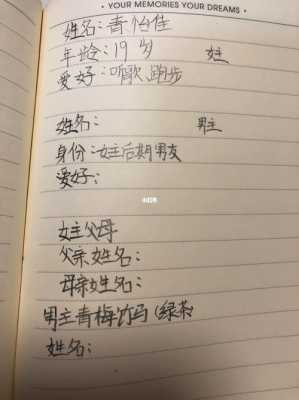 • YOUR MEMORIES YOUR DREAMS •
姓名：青怡佳
年龄：19岁 女主
爱好：听歌、跑步
姓名： 男主
身份：女主后期男友
爱好；
女主父母
父亲姓名：
母亲姓名：
男主青梅竹马（绿茶）
姓名；